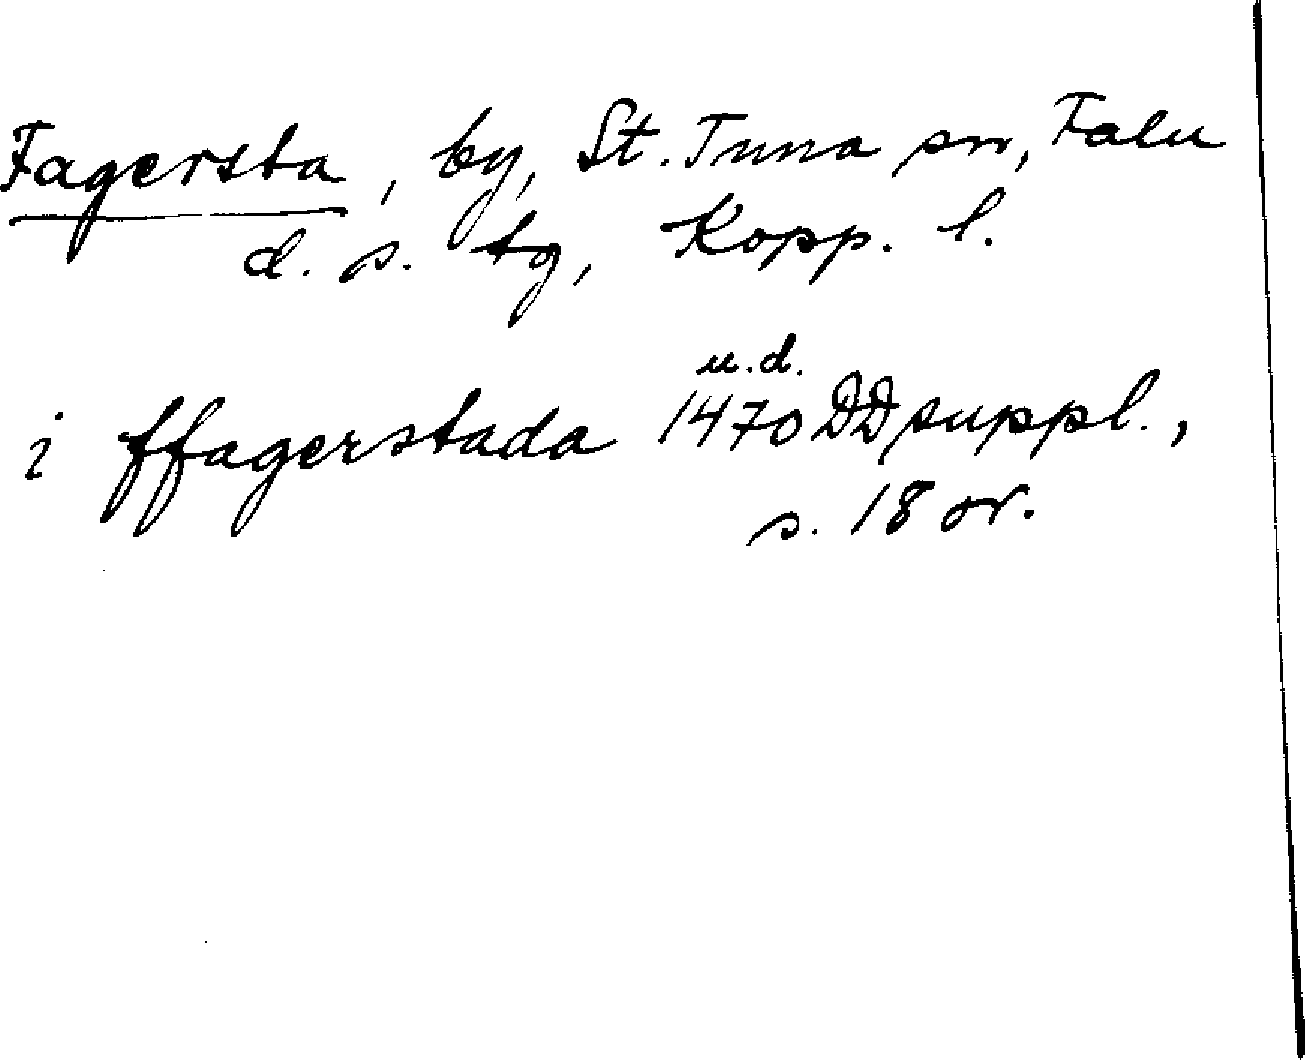 Fagersta, by, St. Tuna sn, Falu
d. s. tg, Kopp. l.
u.d.
i ffagerstada 1470 DD suppl.,
s. 18 or.